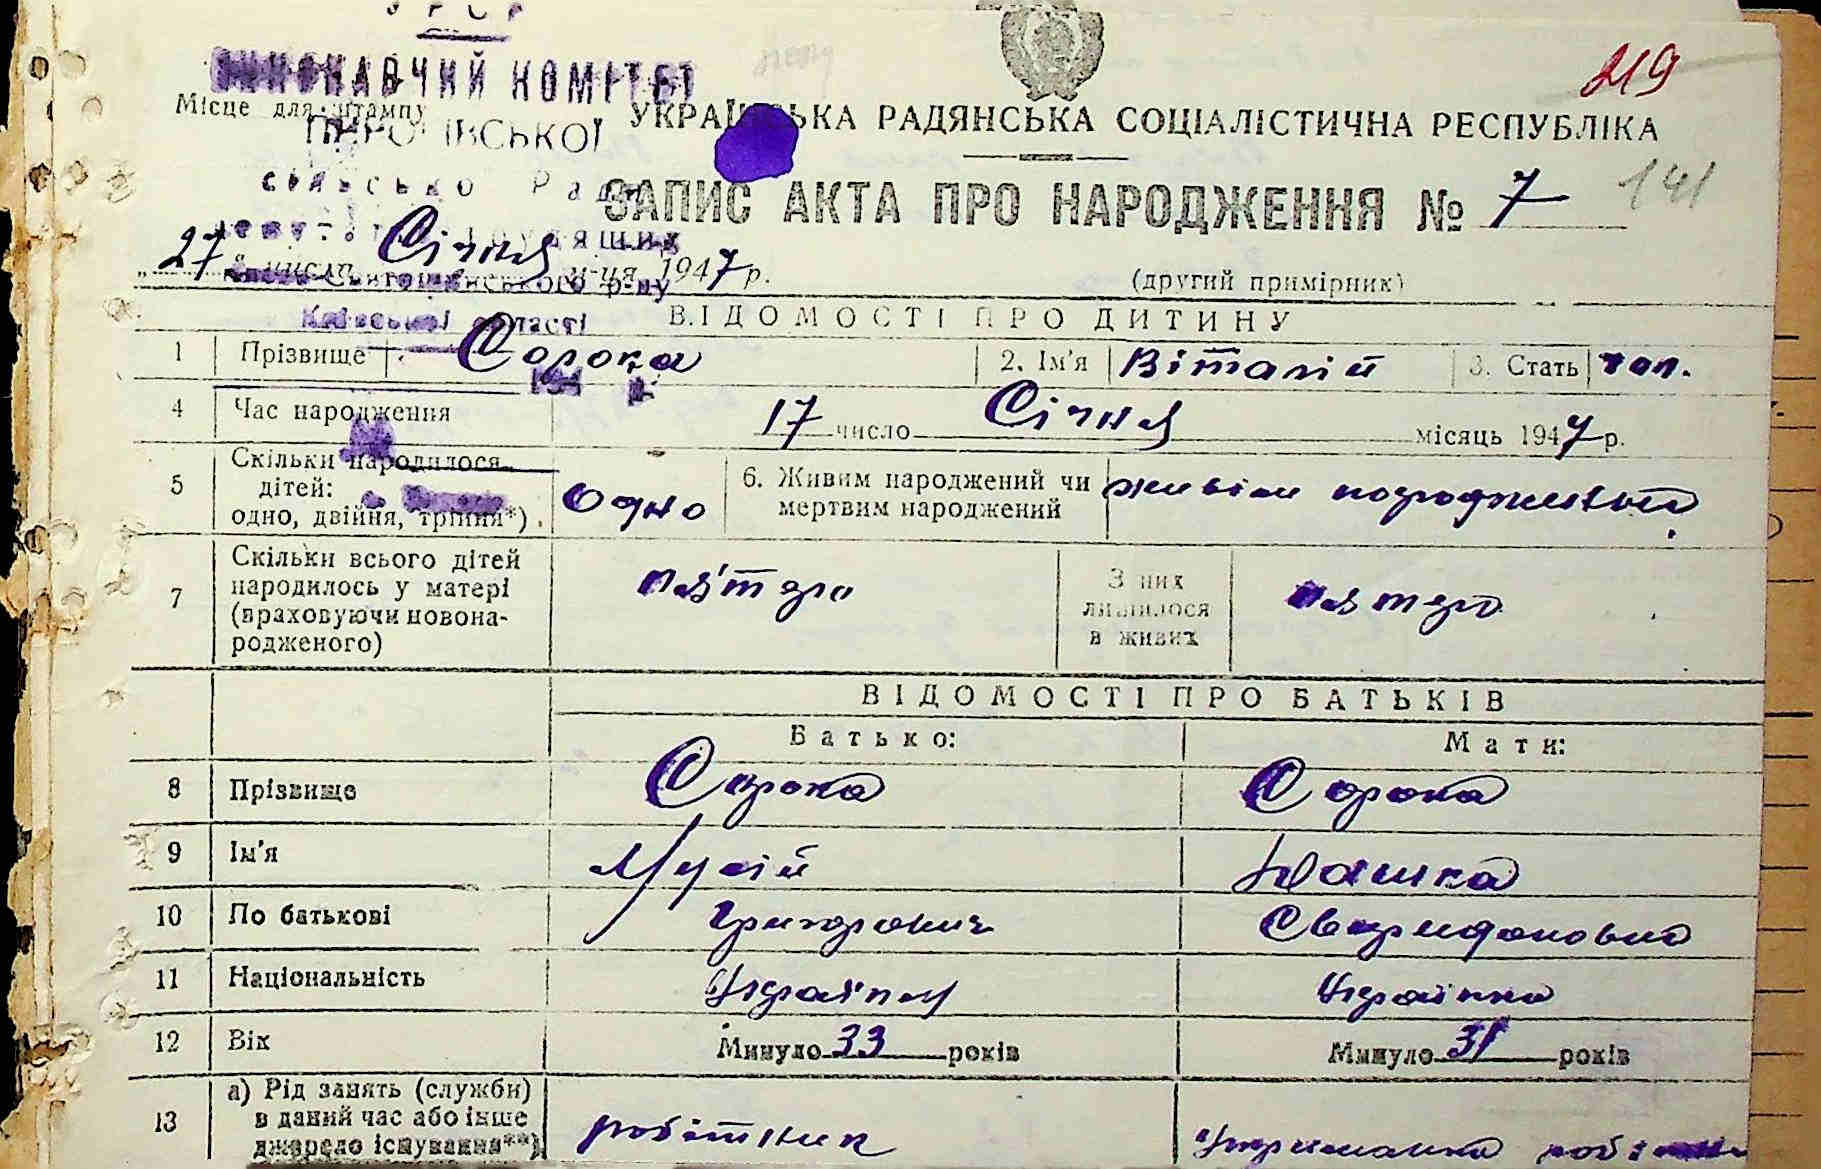 УРСР
ВИКОНАВЧИЙ КОМІТЕТ
219
Місце для штампу
УКРАЇНСЬКА РАДЯНСЬКА СОЦІАЛІСТИЧНА РЕСПУБЛІКА
141
ЗАПИС АКТА ПРО НАРОДЖЕННЯ № 7
трудящих
„27" число Січня м-ця 1947 р.
(другий примірник)
Київської області
ВІДОМОСТІ ПРО ДИТИНУ
1 Прізвище Сорока 2. Ім'я Віталій 3. Стать чол.
4 Час народження 17 число Січня місяць 1947 р.
5 Скільки народилося дітей: одно, двійня, трійня*) Одно 6. Живим народжений чи мертвим народжений живим народжений
7 Скільки всього дітей народилось у матері (враховуючи новонародженого) п'ятеро З них лишилося в живих пятеро
ВІДОМОСТІ ПРО БАТЬКІВ
Батько: Мати:
8 Прізвище Сорока Сорока
9 Ім'я Мусій
10 По батькові Григорович Свиридоновна
11 Національність Українець Українка
12 Вік Минуло 33 років Минуло 31 років
13 а) Рід занять (служби) в даний час або інше джерело існування**) робітник Утриманка